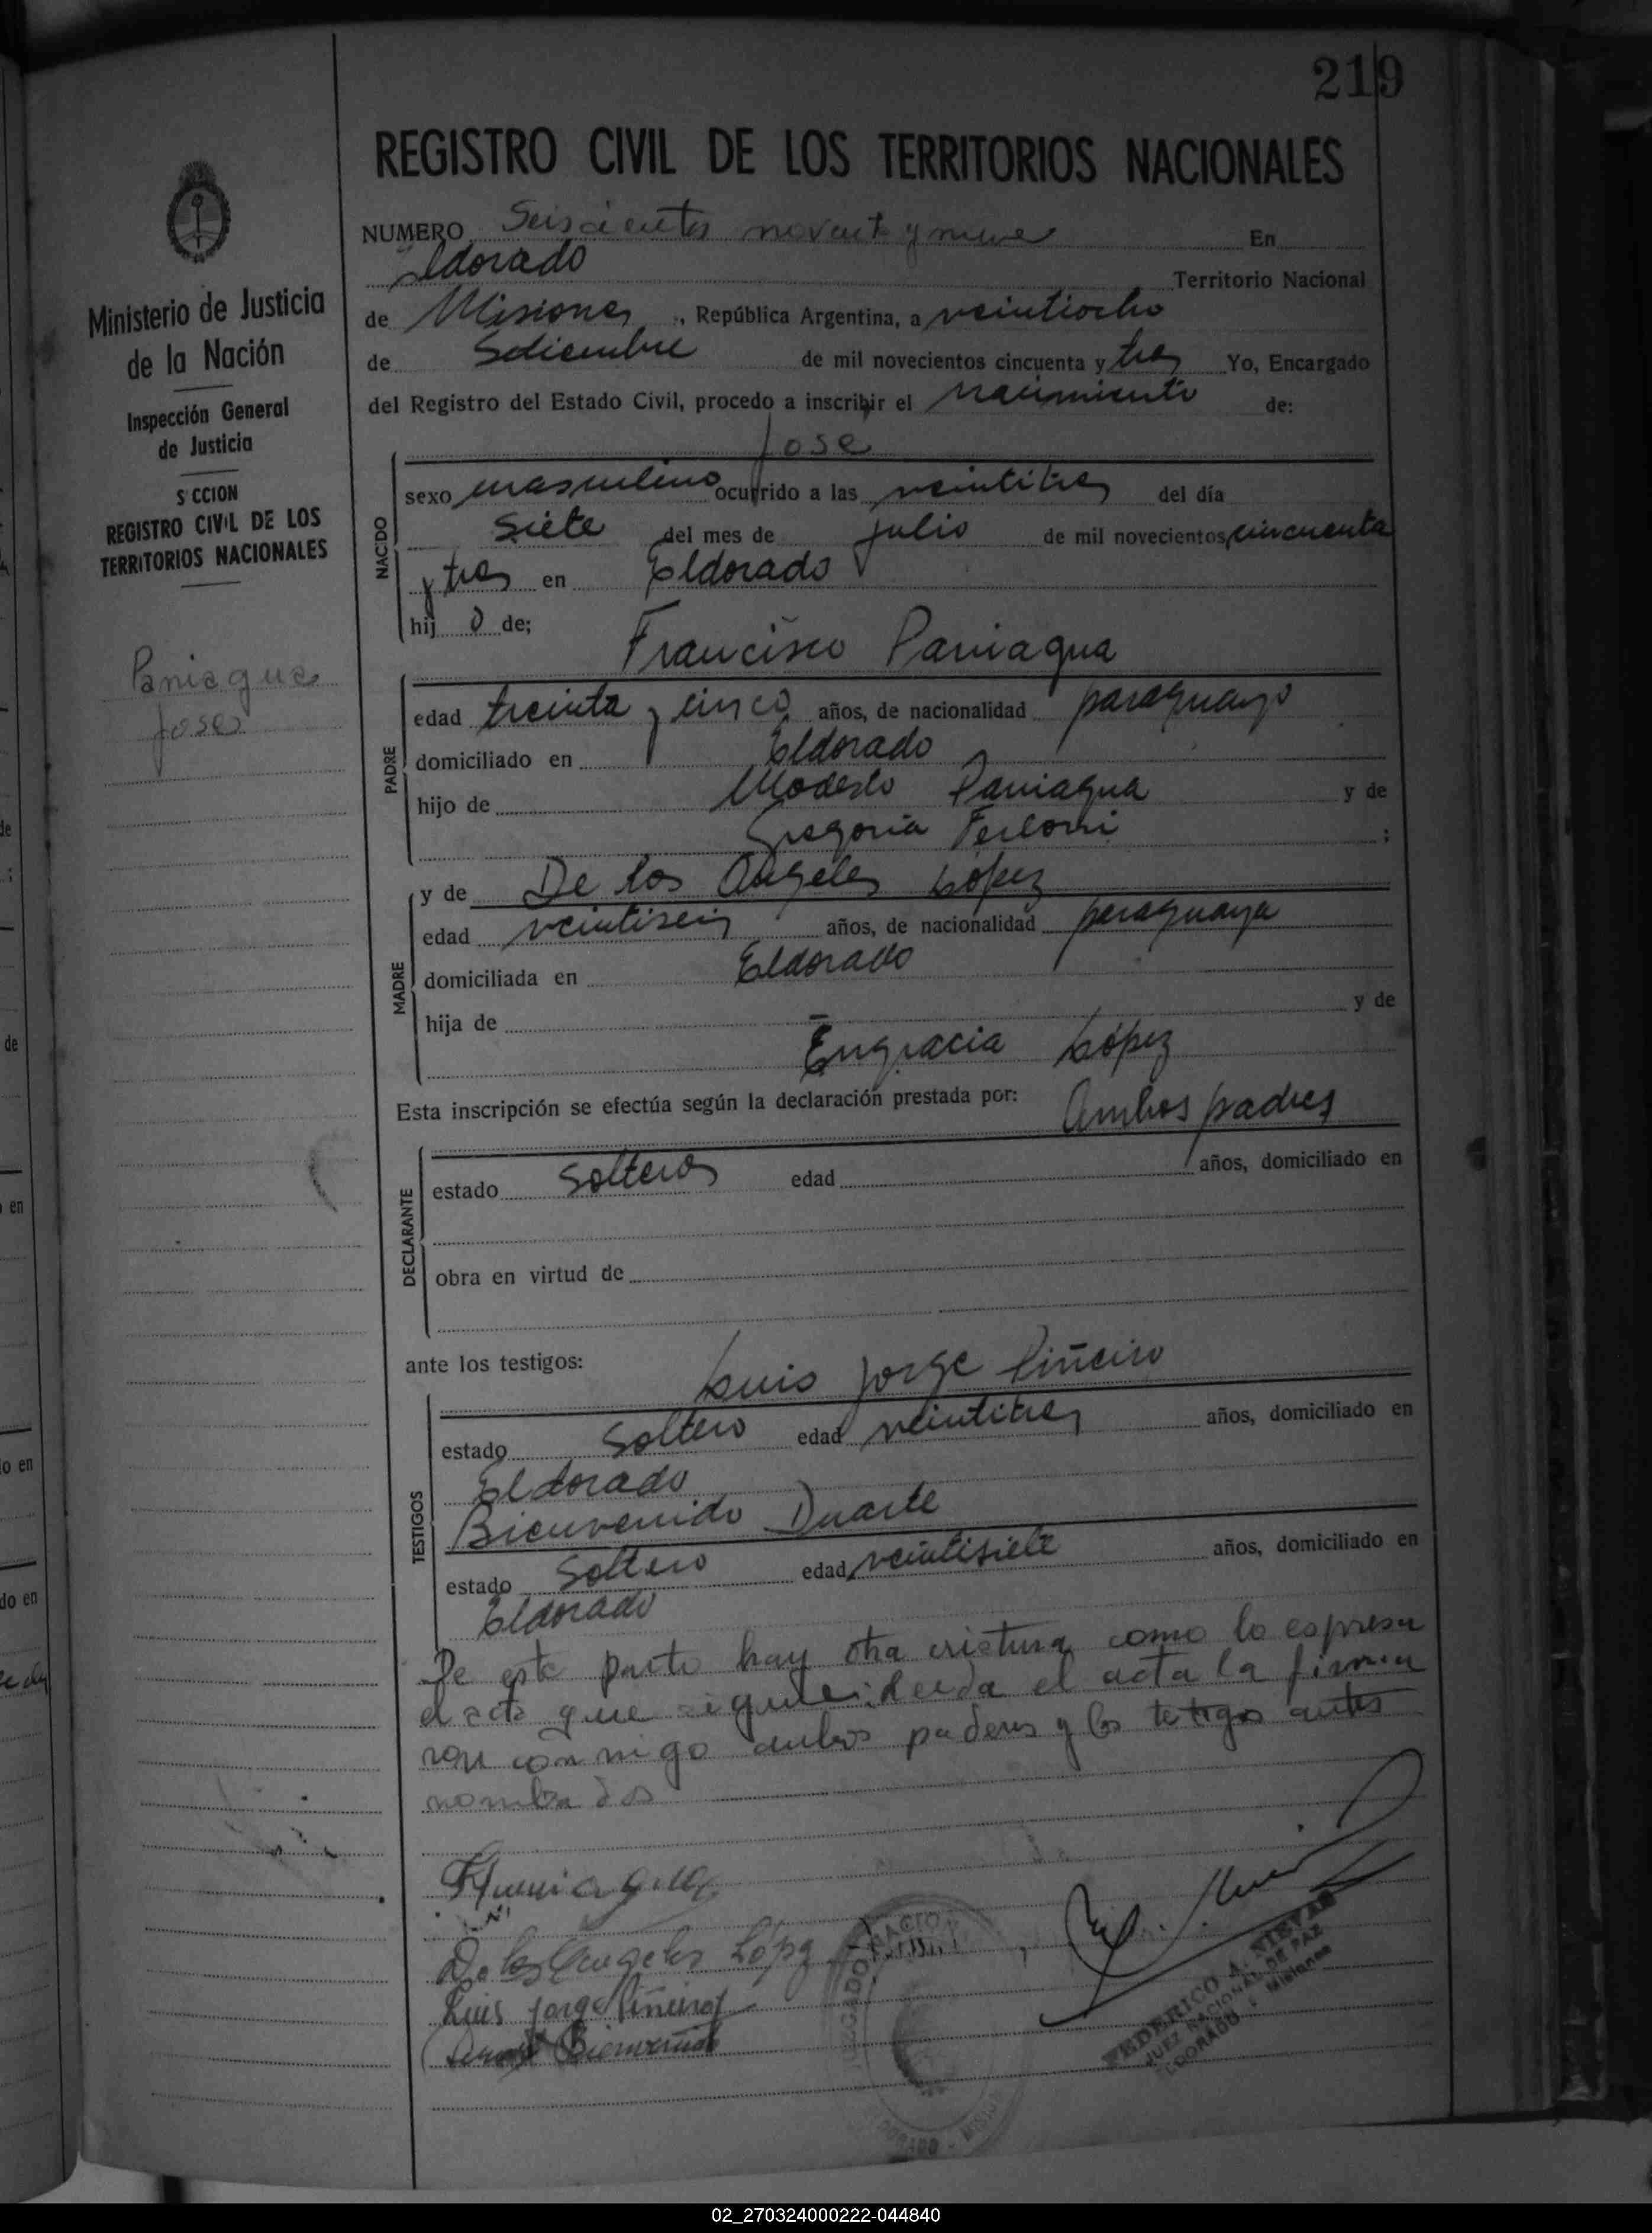 219
REGISTRO CIVIL DE LOS TERRITORIOS NACIONALES
Ministerio de Justicia
de la Nación
Inspección General
de Justicia
S CCION
REGISTRO CIVIL DE LOS
TERRITORIOS NACIONALES
Paniagua
Jose
NUMERO Seiscientos noventa y nueve En
Eldorado Territorio Nacional
de Misiones, República Argentina, a veintiocho
de Setiembre de mil novecientos cincuenta y tres Yo, Encargado
del Registro del Estado Civil, procedo a inscribir el nacimiento de:
Jose
NACIDO
sexo masculino ocurrido a las veintitres del día
siete del mes de julio de mil novecientos cincuenta
y tres en Eldorado
hij o de;
Francisco Paniagua
PADRE
edad treinta y cinco años, de nacionalidad paraguayo
domiciliado en Eldorado
hijo de Modesto Paniagua y de
Gregoria ;
y de De los Angeles López
MADRE
edad veintiseis años, de nacionalidad paraguaya
domiciliada en Eldorado
hija de y de
Engracia López
Esta inscripción se efectúa según la declaración prestada por: Ambos padres
DECLARANTE
estado Solteros edad años, domiciliado en
obra en virtud de
ante los testigos:
Luis Jorge Piñeiro
TESTIGOS
estado Soltero edad veintitres años, domiciliado en
Eldorado
Bienvenido Duarte
estado Soltero edad veintisiete años, domiciliado en
Eldorado
De este parto hay otra criatura como lo espresa
el acta que sigue: Leida el acta la firma
ron conmigo ambos padres y los testigos antes
nombrados
De los Angeles López
Luis Jorge Piñeiro
Duarte Bienvenido
JUZGADO NACIO
DORADO - MISIO
FEDERICO A. NIEVAS
JUEZ NACIONAL DE PAZ
LDORADO - Misiones
02_270324000222-044840